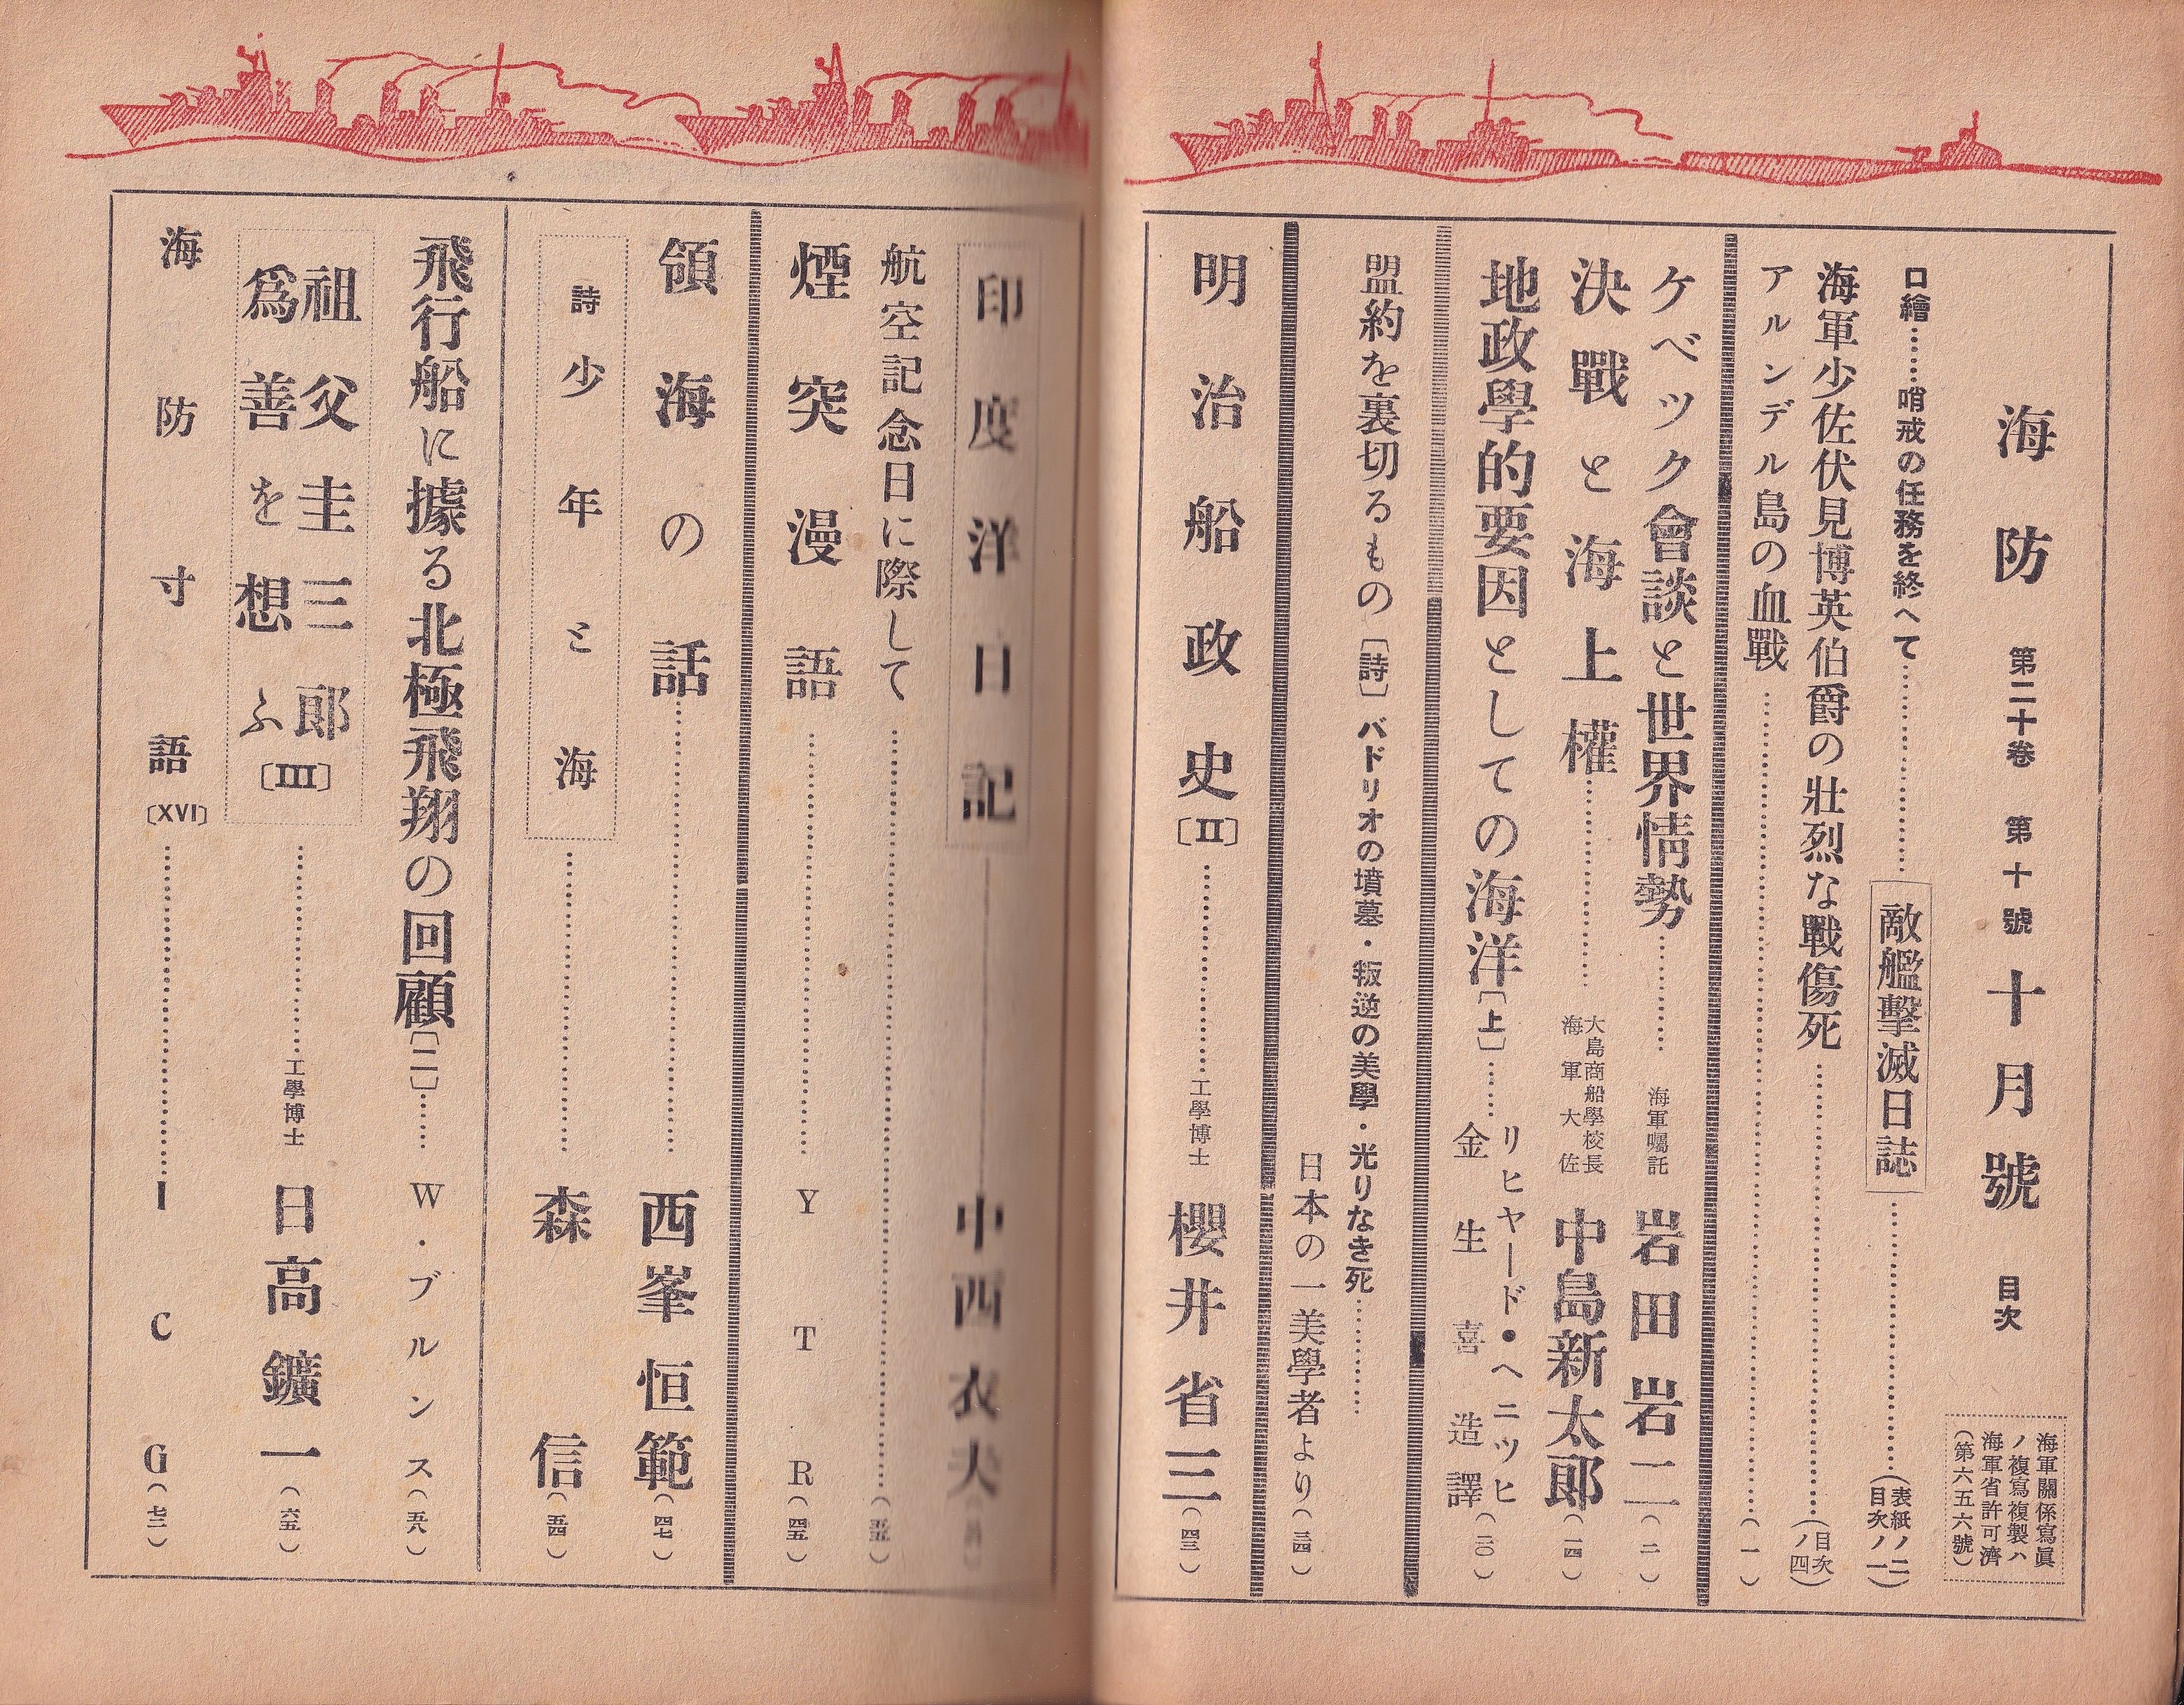 海防 第二十卷 第十號 十月號 目次
海軍關係寫眞
ノ複寫複製ハ
海軍省許可濟
(第六五六號)
口繪……哨戒の任務を終へて………… 敵艦擊滅日誌 …………(表紙ノ二)(目次ノ一)
海軍少佐伏見博英伯爵の壯烈な戰傷死…………(目次ノ四)
アルンデル島の血戰…………(一)
ケベツク會談と世界情勢………… 海軍囑託 岩田岩二(二)
決戰と海上權………… 大島商船學校長 海軍大佐 中島新太郎(一四)
地政學的要因としての海洋〔上〕…… リヒヤード・ヘニツヒ 金生喜造譯(二〇)
盟約を裏切るもの〔詩〕バドリオの墳墓・叛逆の美學・光りなき死…………
日本の一美學者より(三四)
明治船政史〔II〕………… 工學博士 櫻井省三(四三)
印度洋日記 中西衣夫
航空記念日に際して…………
煙突漫語………… YTR(四五)
領海の話………… 西峯恒範(四七)
詩 少年と海………… 森信(五四)
飛行船に據る北極飛翔の回顧〔二〕…… W・ブルンス(五八)
祖父圭三郎
爲善を想ふ〔III〕………… 工學博士 日高鑛一(六五)
海防寸語〔XVI〕………… ICG(七二)